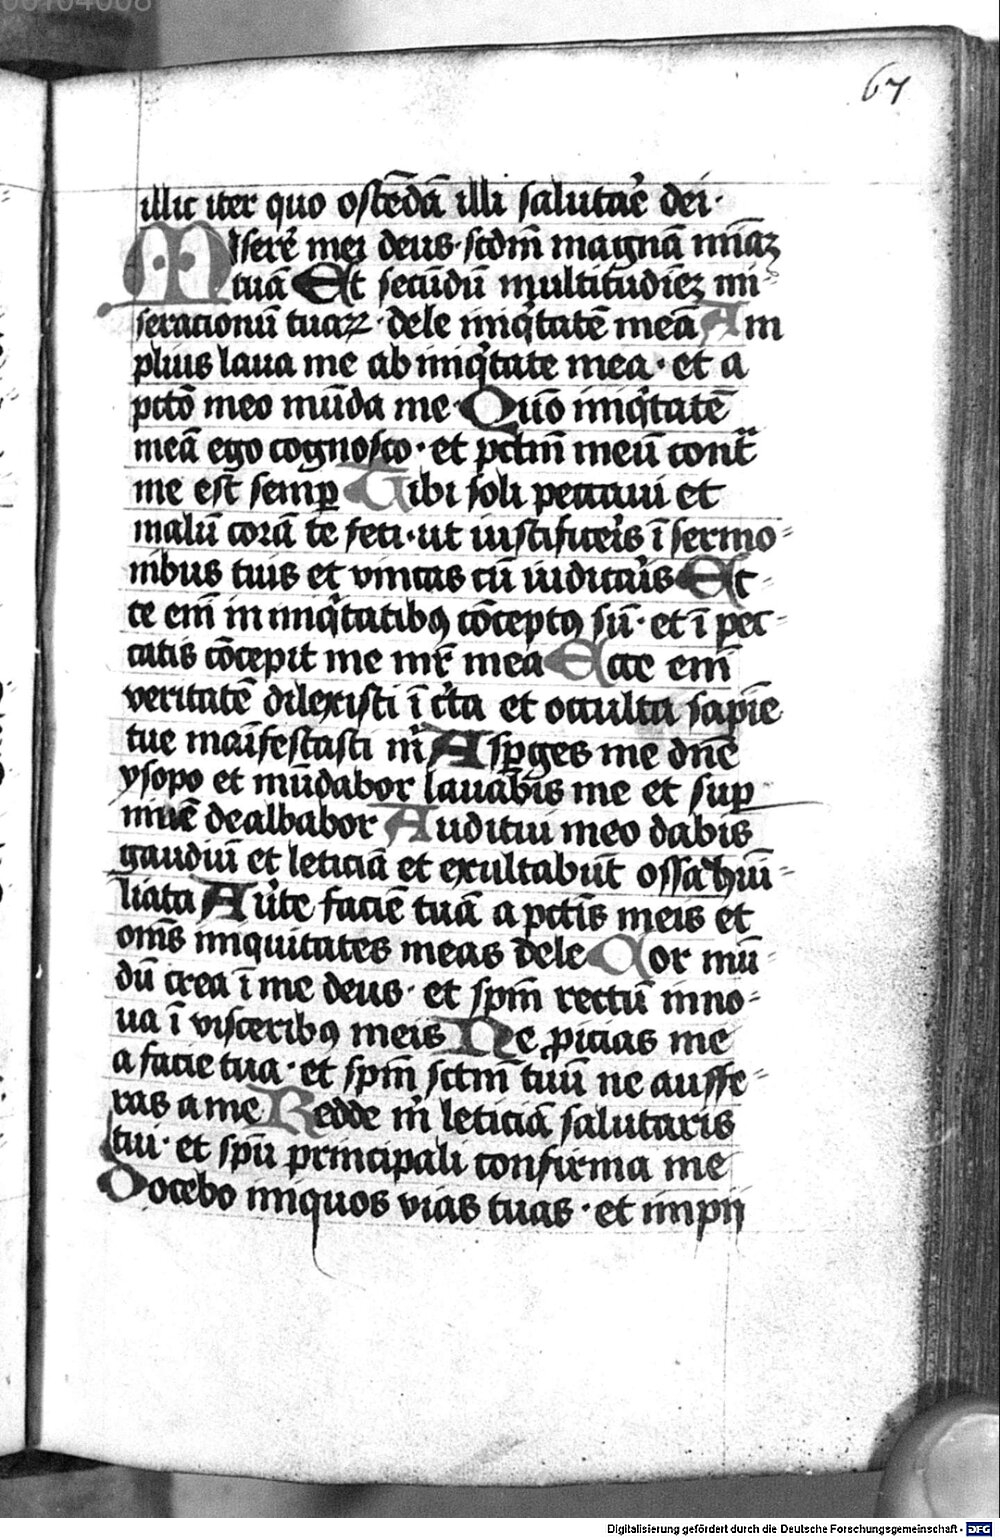 67
illic iter quo ostēdā illi salutaꝛ̄ dei·
Miserē mei deus· scdm̄ maignā mīaꝫ
tuā Et secūdū multitudīeꝫ mi
seracionū tuaꝝ· dele iniq̄tatē meā Am
plius laua me ab iniq̄tate mea· et a
pctō meo mūda me· Quō iniq̄tatē
meā ego cognosco· et pctm̄ meū cont̄
me est semꝑ Tibi soli peccaui et
malū corā te feci· ut iustificeis̄ ī sermo
nibus tuis et vincas cū iudicais̄ Ec
ce em̄ in iniq̄tatibꝰ cōceptꝰ sū· et ī pec
catis cōcepit me mr̄ mea Ecce em̄
veritatē dilexisti īc̄ta et occulta sapīe
tue maīfestasti m̄ Aspges me dn̄e
ysopo et mūdabor lauab̄is me et suꝑ
niuē dealbabor Auditui meo dabis
gaudiū et leticiā et exultabūt ossa hūi
liata Aūte faciē tuā a pctīs meis et
om̄s iniquitates meas dele Cor mū
dū crea ī me deus· et spm̄ rectū inno
ua ī visceribꝰ meis Ne ꝓicias me
a facie tua· et spm̄ sctm̄ tuū ne auffe
ras a me Redde m̄ leticiā salutaris
tui· et spū principali confirma me
Docebo iniquos vias tuas· et impij
Digitalisierung gefördert durch die Deutsche Forschungsgemeinschaft - DFG